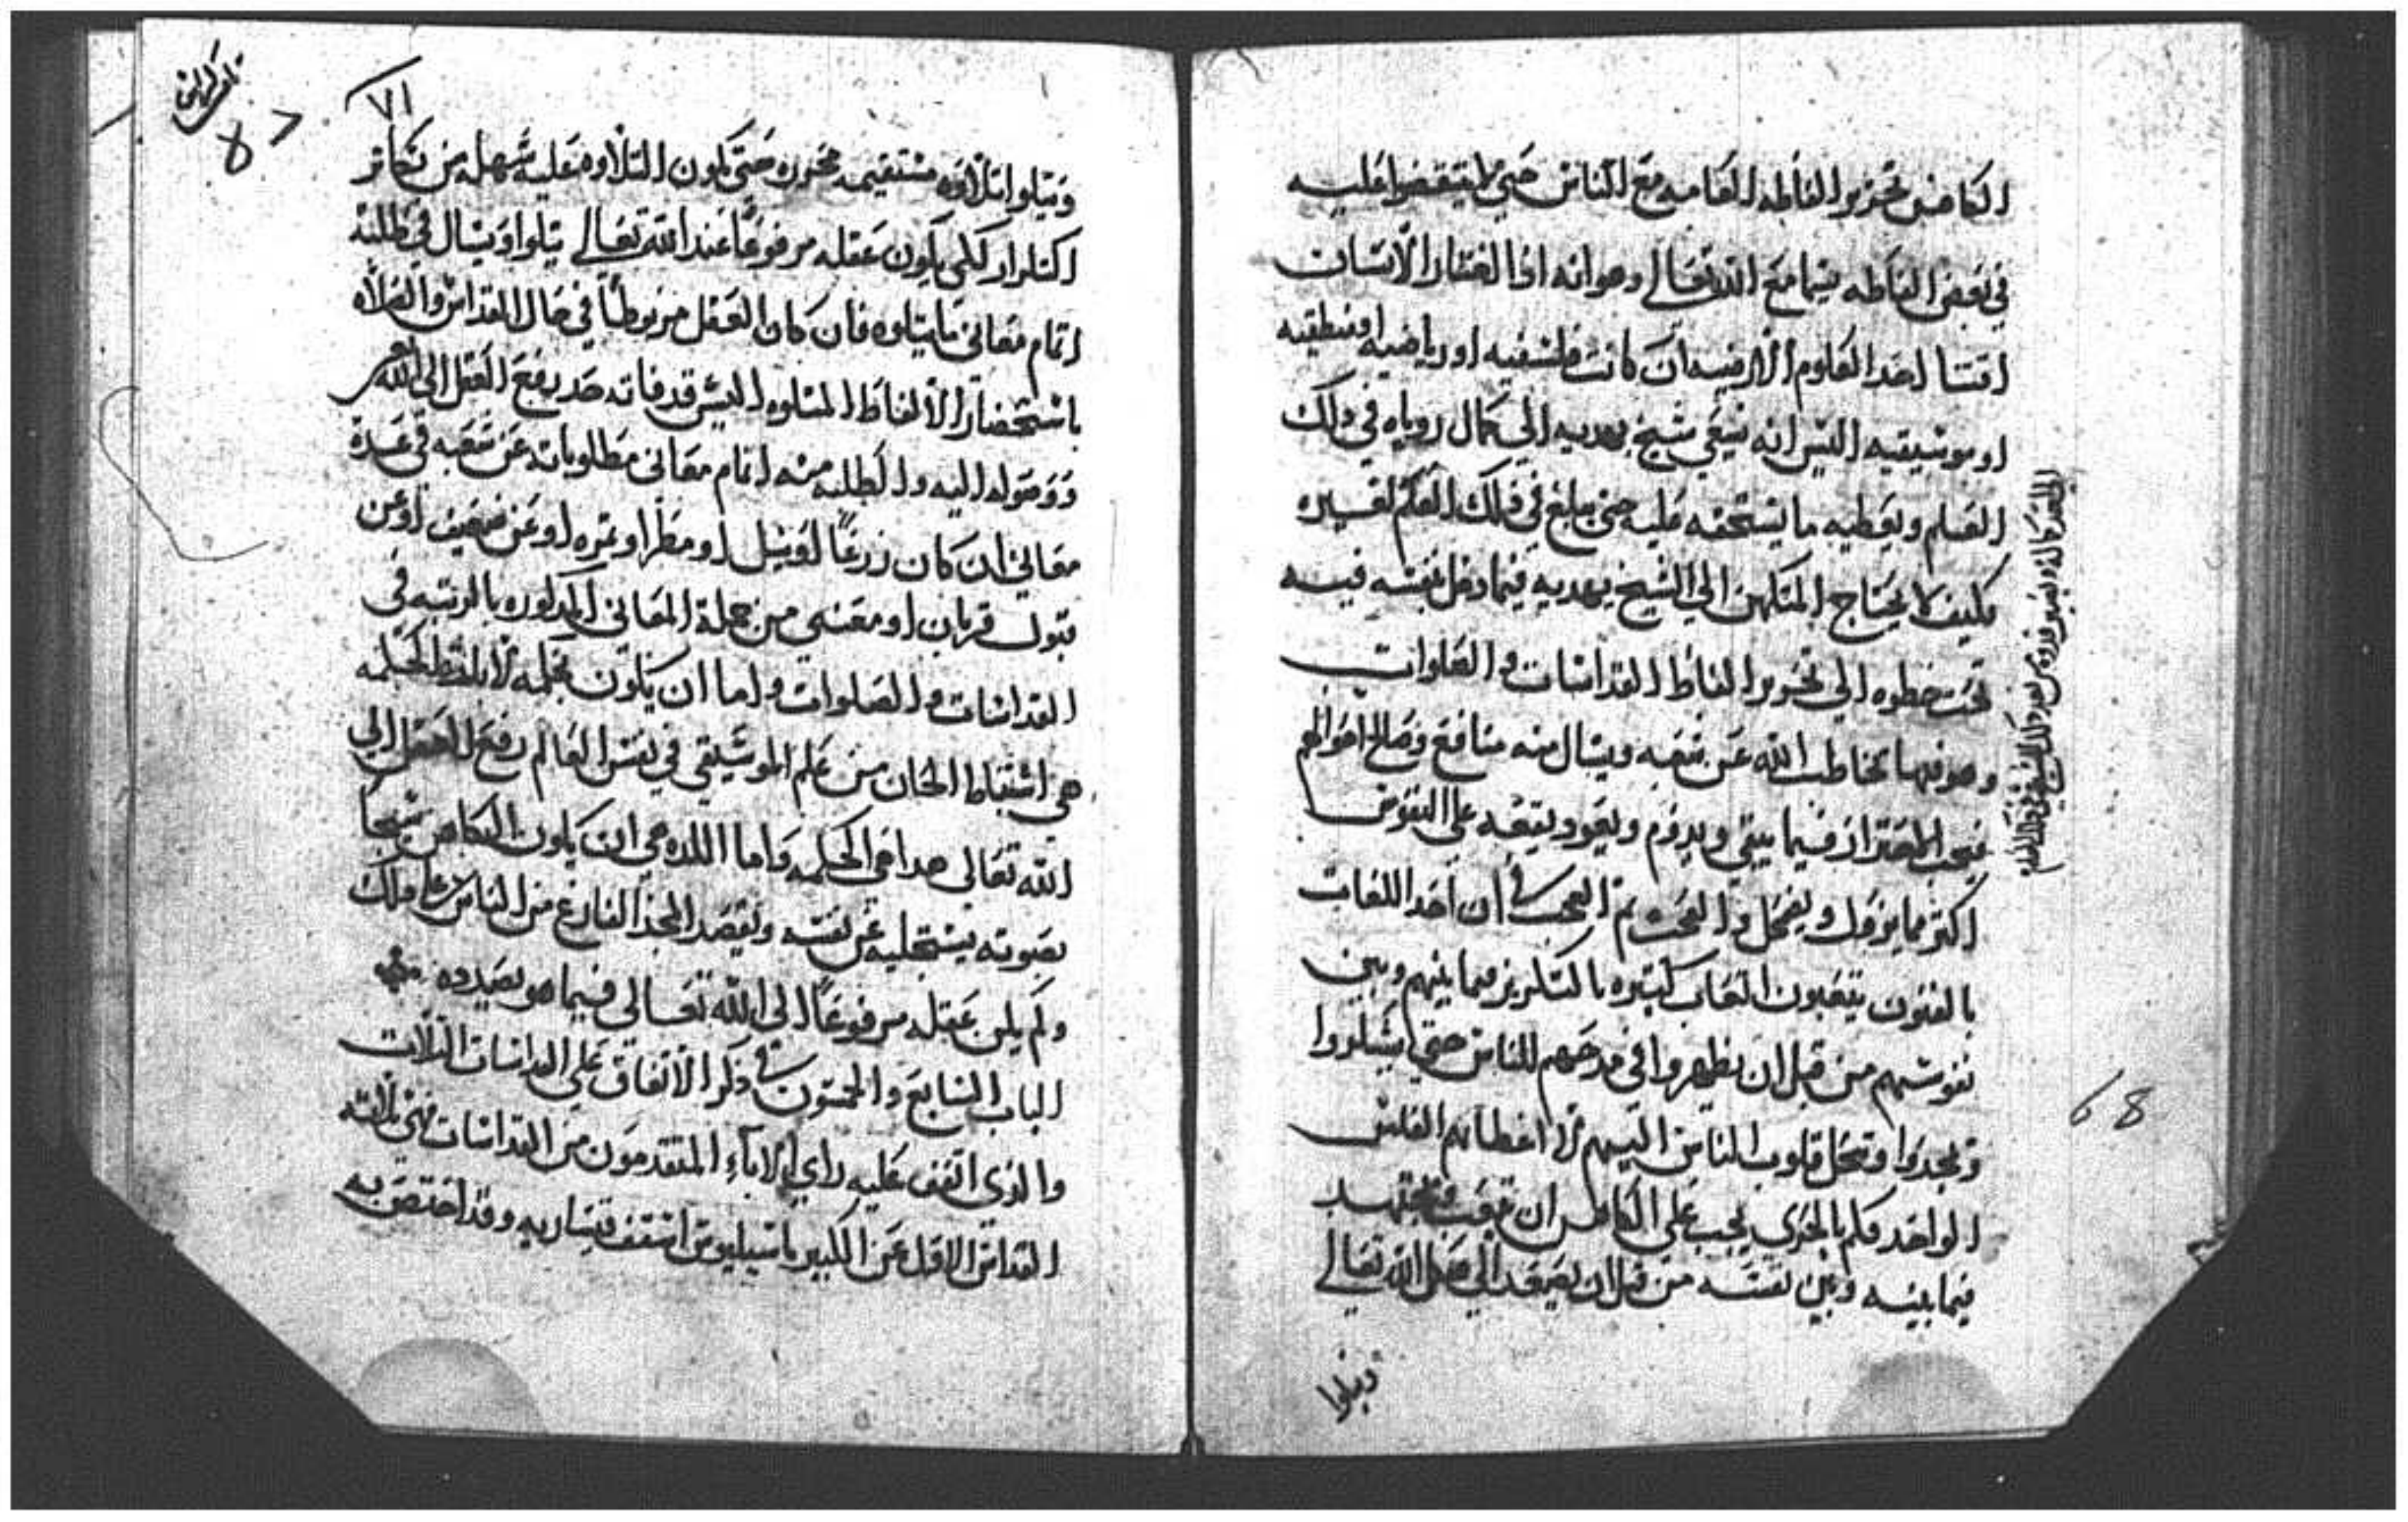 الكاهن تحرير الفاظه العاميه مع الناس حتي لا يتقضوا عليه
في بعض الفاظه سيما مع الله تعالي وهو انه اذا الغتار الانسان
اقتنا احد العلوم الارضيه ان كانت فلسفيه او رياضيه او منطقيه
او موسيقيه اليس انه شيخ يهديه الي كمال روياه في ذلك
العلم ويعطيه ما يستحقه عليه حتي يبلغ في ذلك العلم
فكيف لا يحتاج المتكهن الي الشيخ يهديه فيما دخل بنفسه فيه
تحت خطوه الي تحرير الفاظ القداسات والصلوات
وهو فيها يخاطب الله عن شعبه ويسال منه منافع وصالح احوالهم
فيجب الاحتراز فيما يبقي ويدوم ويعود بنفعه علي النفوس
اكتر مما يزول ويضمحل والعجب ثم العجب في ان احد اللغات
بالفنون يتعبون اتعاب كتيره بالتكرير فيما بينهم وبين
نفوسهم من قبل ان يظهروا في مدحهم للناس حتي يشكروا
ويمجدوا وتميل قلوب الناس اليهم لاعطايهم الفلس
الواحد فكم بالحري يجب علي الكاهن ان يتعب ويجتهد
فيما بينه وبين نفسه من قبل ان يصعد الي هيكل الله تعالي
ويتلوا
68
٧١
ويتلوا تلاوه مستقيمه محرره حتي تكون التلاوه عليه سهله من تكاثر
التكرار لكي يكون عقله مرفوعًا عند الله تعالي يتلوا ويسال في طلبة
اتمام معاني ما يتلوه فان كان العقل مربوطًا في حال القداس والصلاه
باستحضار الالفاظ المتلوه اليس قد فاته حد رفع العقل الي الله
ووصوله اليه والطلبه منه اتمام معاني مطلوباته عن شعبه في عدة
معاني ان كان زرعًا او نيل او مطرا او ثمره او عن ضعيف او عن
قبول قربان او معني من جملة المعاني المذكوره بالمرتبه في
القداسات والصلوات واما ان يكون بحكمه لا بلفظ الحكمه
هي استنباط الحان من علم الموسيقي في نفس العالم رفع العقل الي
الله تعالي هذا هي الحكمه واما اللذه هي ان يكون الكاهن شيخًا
بصوته يستجليه عن نفسه ويقصد المجد الفارغ من الناس علي ذلك
ولم يكن عقله مرفوعًا الي الله تعالي فيما هو بصدده
الباب السابع والخمسون في ذكر الاتفاق علي القداسات الثلاث
والذي اتفق عليه راي الاباء المتقدمون من القداسات هي ثلاثه
القداس الاول عن الكبير باسيليوس اسقف قيساريه وقد اختص به